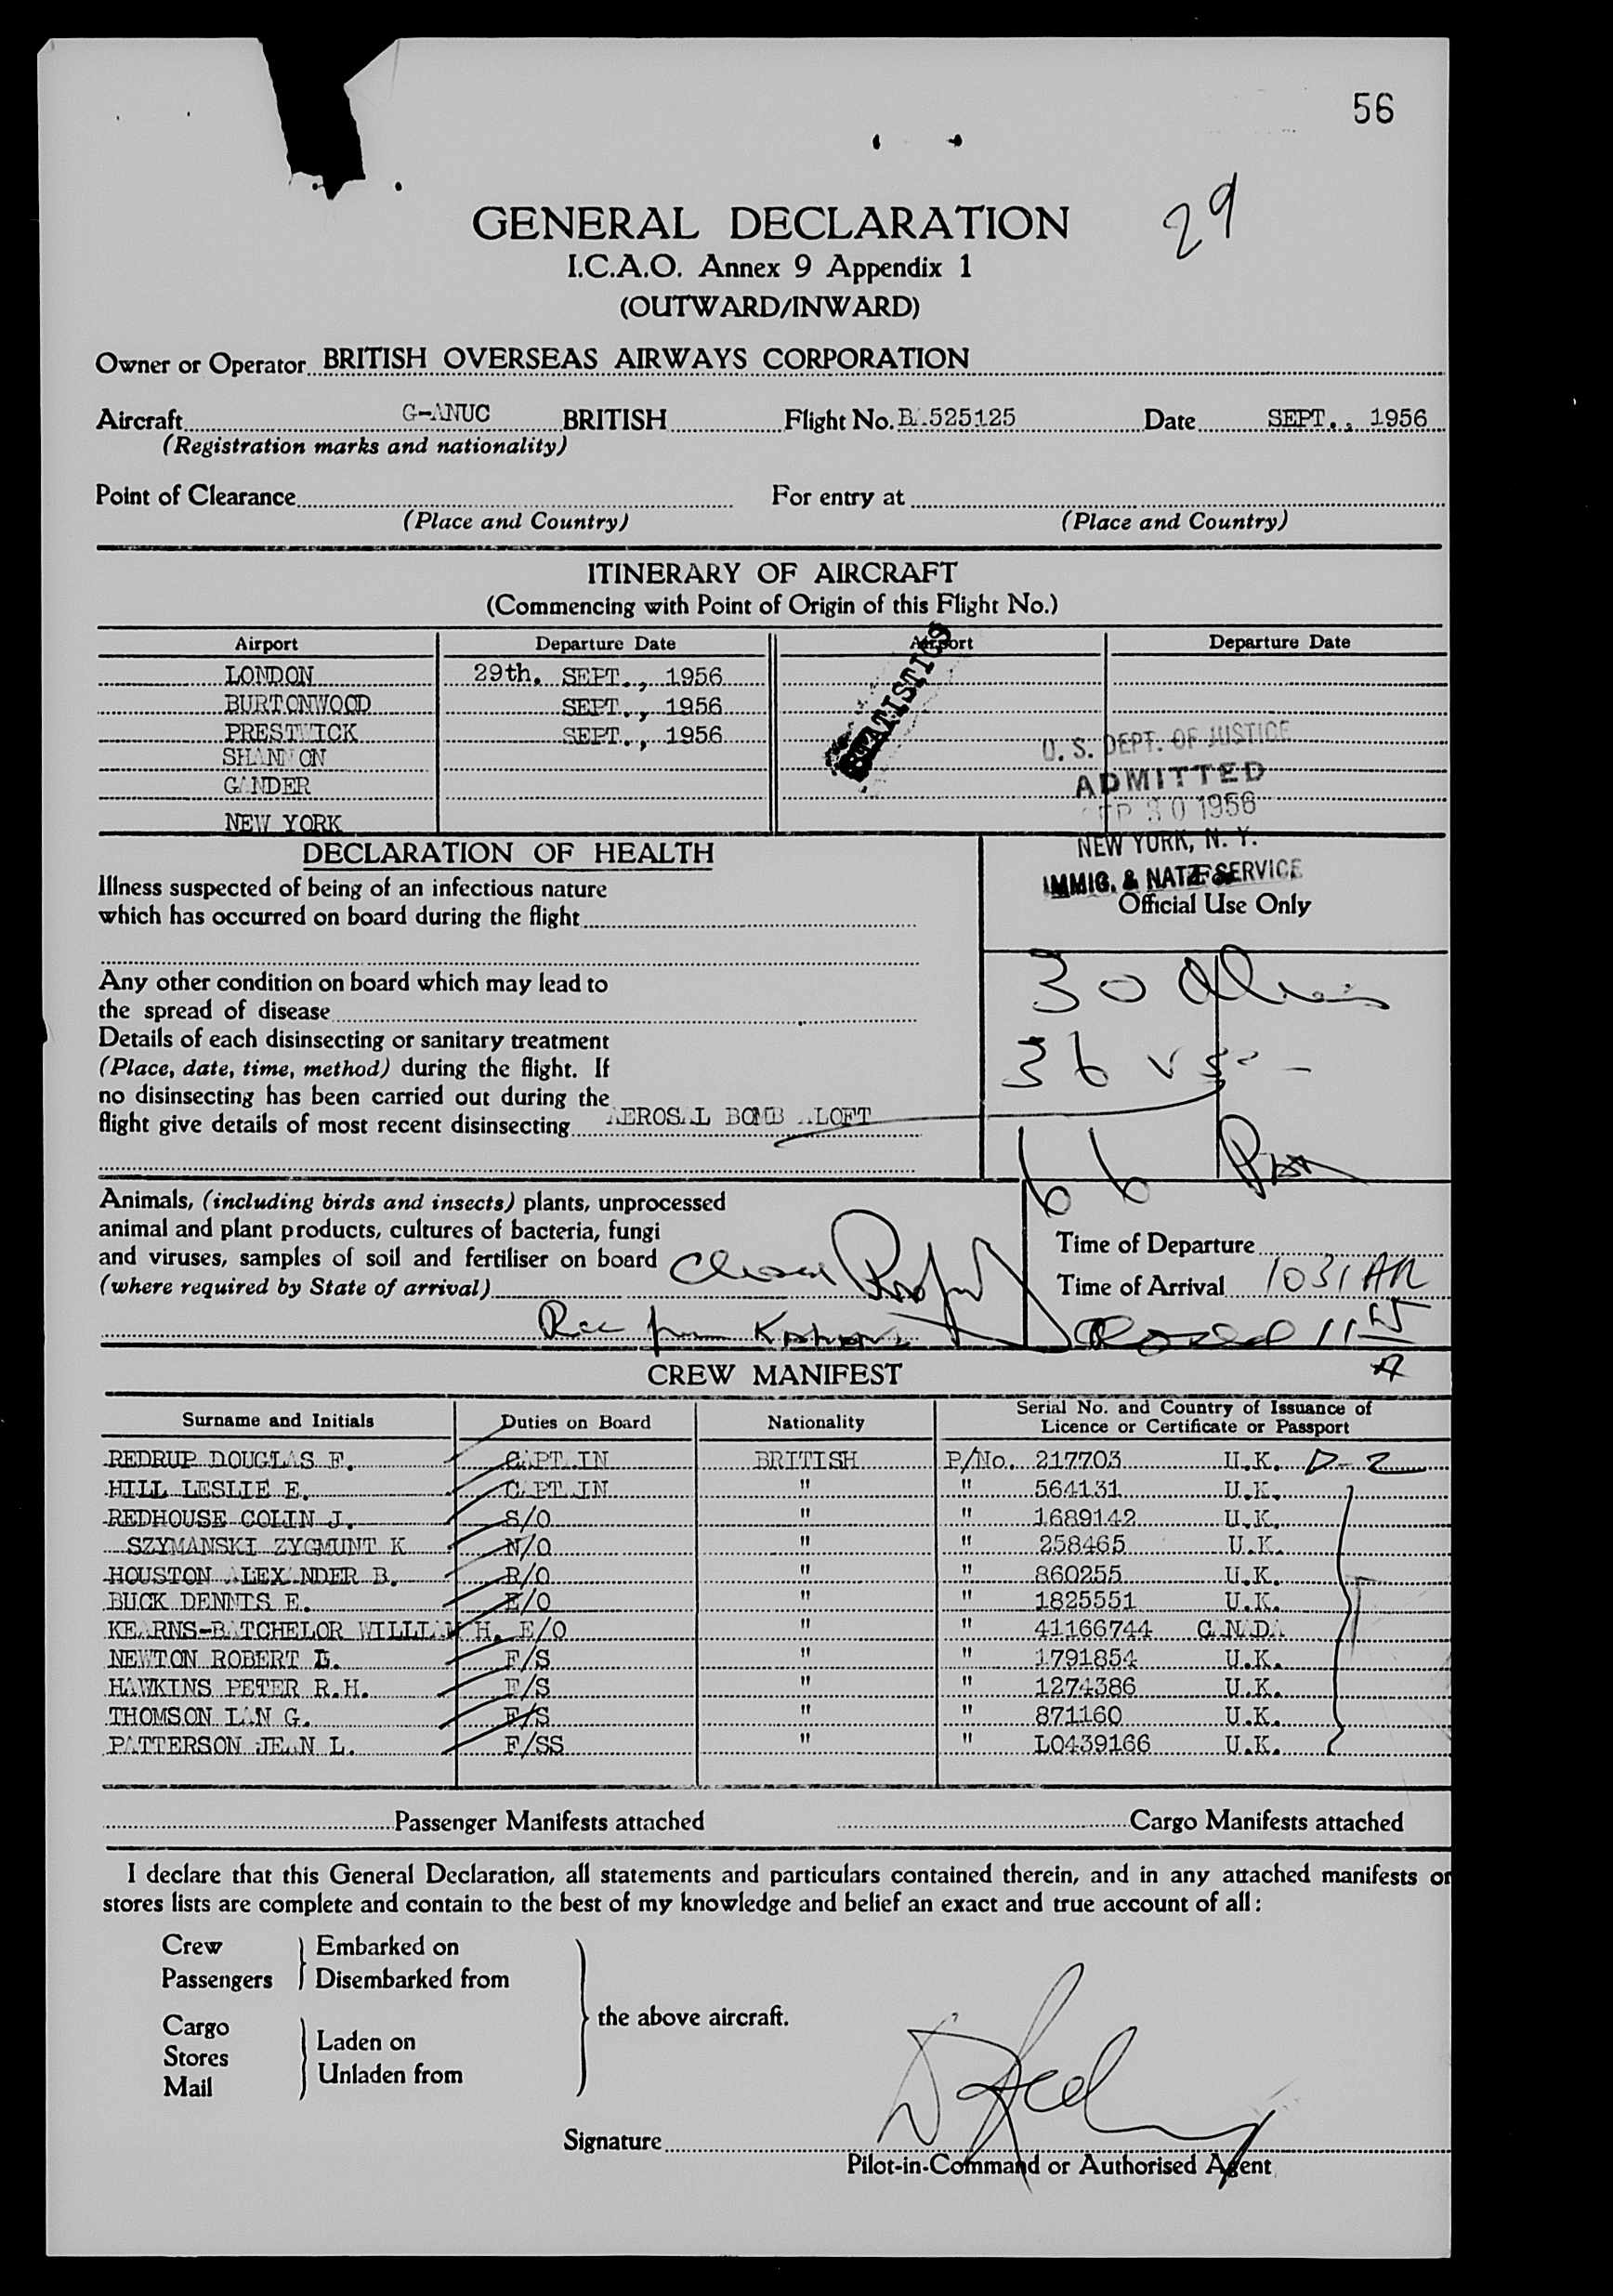 56
29
GENERAL DECLARATION
I.C.A.O. Annex 9 Appendix 1
(OUTWARD/INWARD)
Owner or Operator BRITISH OVERSEAS AIRWAYS CORPORATION
Aircraft G-ANUC BRITISH Flight No. BA525125 Date SEPT., 1956
(Registration marks and nationality)
Point of Clearance For entry at
(Place and Country) (Place and Country)
ITINERARY OF AIRCRAFT
(Commencing with Point of Origin of this Flight No.)
Airport Departure Date Airport Departure Date
LONDON 29th. SEPT., 1956
BURTONWOOD SEPT., 1956
PRESTWICK SEPT., 1956
SHANNON
GANDER
NEW YORK
STATISTICS
U. S. DEPT. OF JUSTICE
ADMITTED
SEP 30 1956
NEW YORK, N. Y.
IMMIG. & NATZ SERVICE
DECLARATION OF HEALTH
Official Use Only
Illness suspected of being of an infectious nature
which has occurred on board during the flight
Any other condition on board which may lead to
the spread of disease
Details of each disinsecting or sanitary treatment
(Place, date, time, method) during the flight. If
no disinsecting has been carried out during the
flight give details of most recent disinsecting AEROSAL BOMB ALOFT
30 Aliens
36 USC
66
Animals, (including birds and insects) plants, unprocessed
animal and plant products, cultures of bacteria, fungi
and viruses, samples of soil and fertiliser on board
(where required by State of arrival)
Time of Departure
Time of Arrival 1031 AM
CREW MANIFEST
Surname and Initials Duties on Board Nationality Serial No. and Country of Issuance of Licence or Certificate or Passport
REDRUP DOUGLAS F. CAPTAIN BRITISH P/No. 217703 U.K. D-2
HILL LESLIE E. CAPTAIN " " 564131 U.K.
REDHOUSE COLIN J. S/O " " 1689142 U.K.
SZYMANSKI ZYGMUNT K N/O " " 258465 U.K.
HOUSTON ALEXANDER B. R/O " " 860255 U.K.
BUCK DENNIS E. E/O " " 1825551 U.K.
KEARNS-BATCHELOR WILLIAM H. E/O " " 41166744 CANADA
NEWTON ROBERT L. F/S " " 1791854 U.K.
HAWKINS PETER R.H. F/S " " 1274386 U.K.
THOMSON IAN G. F/S " " 871160 U.K.
PATTERSON JEAN L. F/SS " " L0439166 U.K.
Passenger Manifests attached Cargo Manifests attached
I declare that this General Declaration, all statements and particulars contained therein, and in any attached manifests or
stores lists are complete and contain to the best of my knowledge and belief an exact and true account of all:
Crew Embarked on
Passengers Disembarked from
the above aircraft.
Cargo
Stores Laden on
Mail Unladen from
Signature
Pilot-in-Command or Authorised Agent